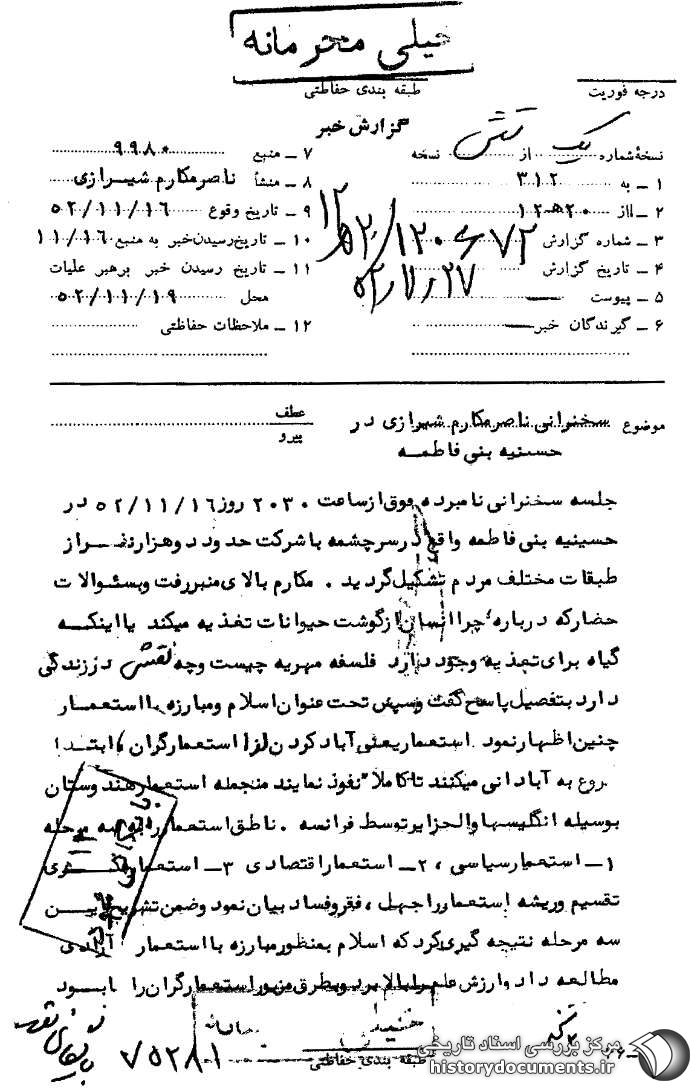 خیلی محرمانه
طبقه بندی حفاظتی
درجه فوریت
گزارش خبر
نسخهٔ شماره یک از شش نسخه
۱ ـ به ۳۱۲
۲ ـ از ۲۰ﻫ۱۲
۳ ـ شماره گزارش
۴ ـ تاریخ گزارش
۵ ـ پیوست
۶ ـ گیرندگان خبر
۷ ـ منبع ۹۹۸۰
۸ ـ منشأ ناصر مکارم شیرازی
۹ ـ تاریخ وقوع ۵۲/۱۱/۱۶
۱۰ ـ تاریخ رسیدن خبر به منبع ۱۱/۱۶
۱۱ ـ تاریخ رسیدن خبر برهبر عملیات
محل ۵۲/۱۱/۱۹
۱۲ ـ ملاحظات حفاظتی
موضوع سخنرانی ناصر مکارم شیرازی در
حسنیه بنی فاطمه
عطف
پیرو
جلسه سخنرانی نامبرده فوق از ساعت ۲۰۳۰ روز ۵۲/۱۱/۱۶ در
حسینیه بنی فاطمه واقع در سرچشمه با شرکت حدود دو هزار نفر از
طبقات مختلف مردم تشکیل گردید . مکارم بالای منبر رفت و بسئوالات
حضار که درباره چرا انسان از گوشت حیوانات تغذیه میکند یا اینکه
گیاه برای تغذیه وجود دارد فلسفه مهریه چیست وچه نقشی در زندگی
دارد بتفصیل پاسخ گفت وسپس تحت عنوان اسلام ومبارزه با استعمار
چنین اظهار نمود استعمار یعنی آباد کردن لذا استعمارگران ابتدا
روع به آبادانی میکنند تا کاملا" نفوذ نمایند منجمله استعمار هندوستان
بوسیله انگلیسها والجزایر توسط فرانسه . ناطق استعمار را به سه مرحله
۱ـ استعمار سیاسی ، ۲ـ استعمار اقتصادی ۳ـ استعمار فکری
تقسیم وریشه استعمار را جهل ، فقر وفساد بیان نمود وضمن تشریح این
سه مرحله نتیجه گیری کرد که اسلام بمنظور مبارزه با استعمار آزادی
مطالعه داد وارزش علم را بالا برد وبطرق مزبور استعمارگران را نابود
طبقه بندی حفاظتی
۷۵۲۸۱
مرکز بررسی اسناد تاریخی
historydocuments.ir